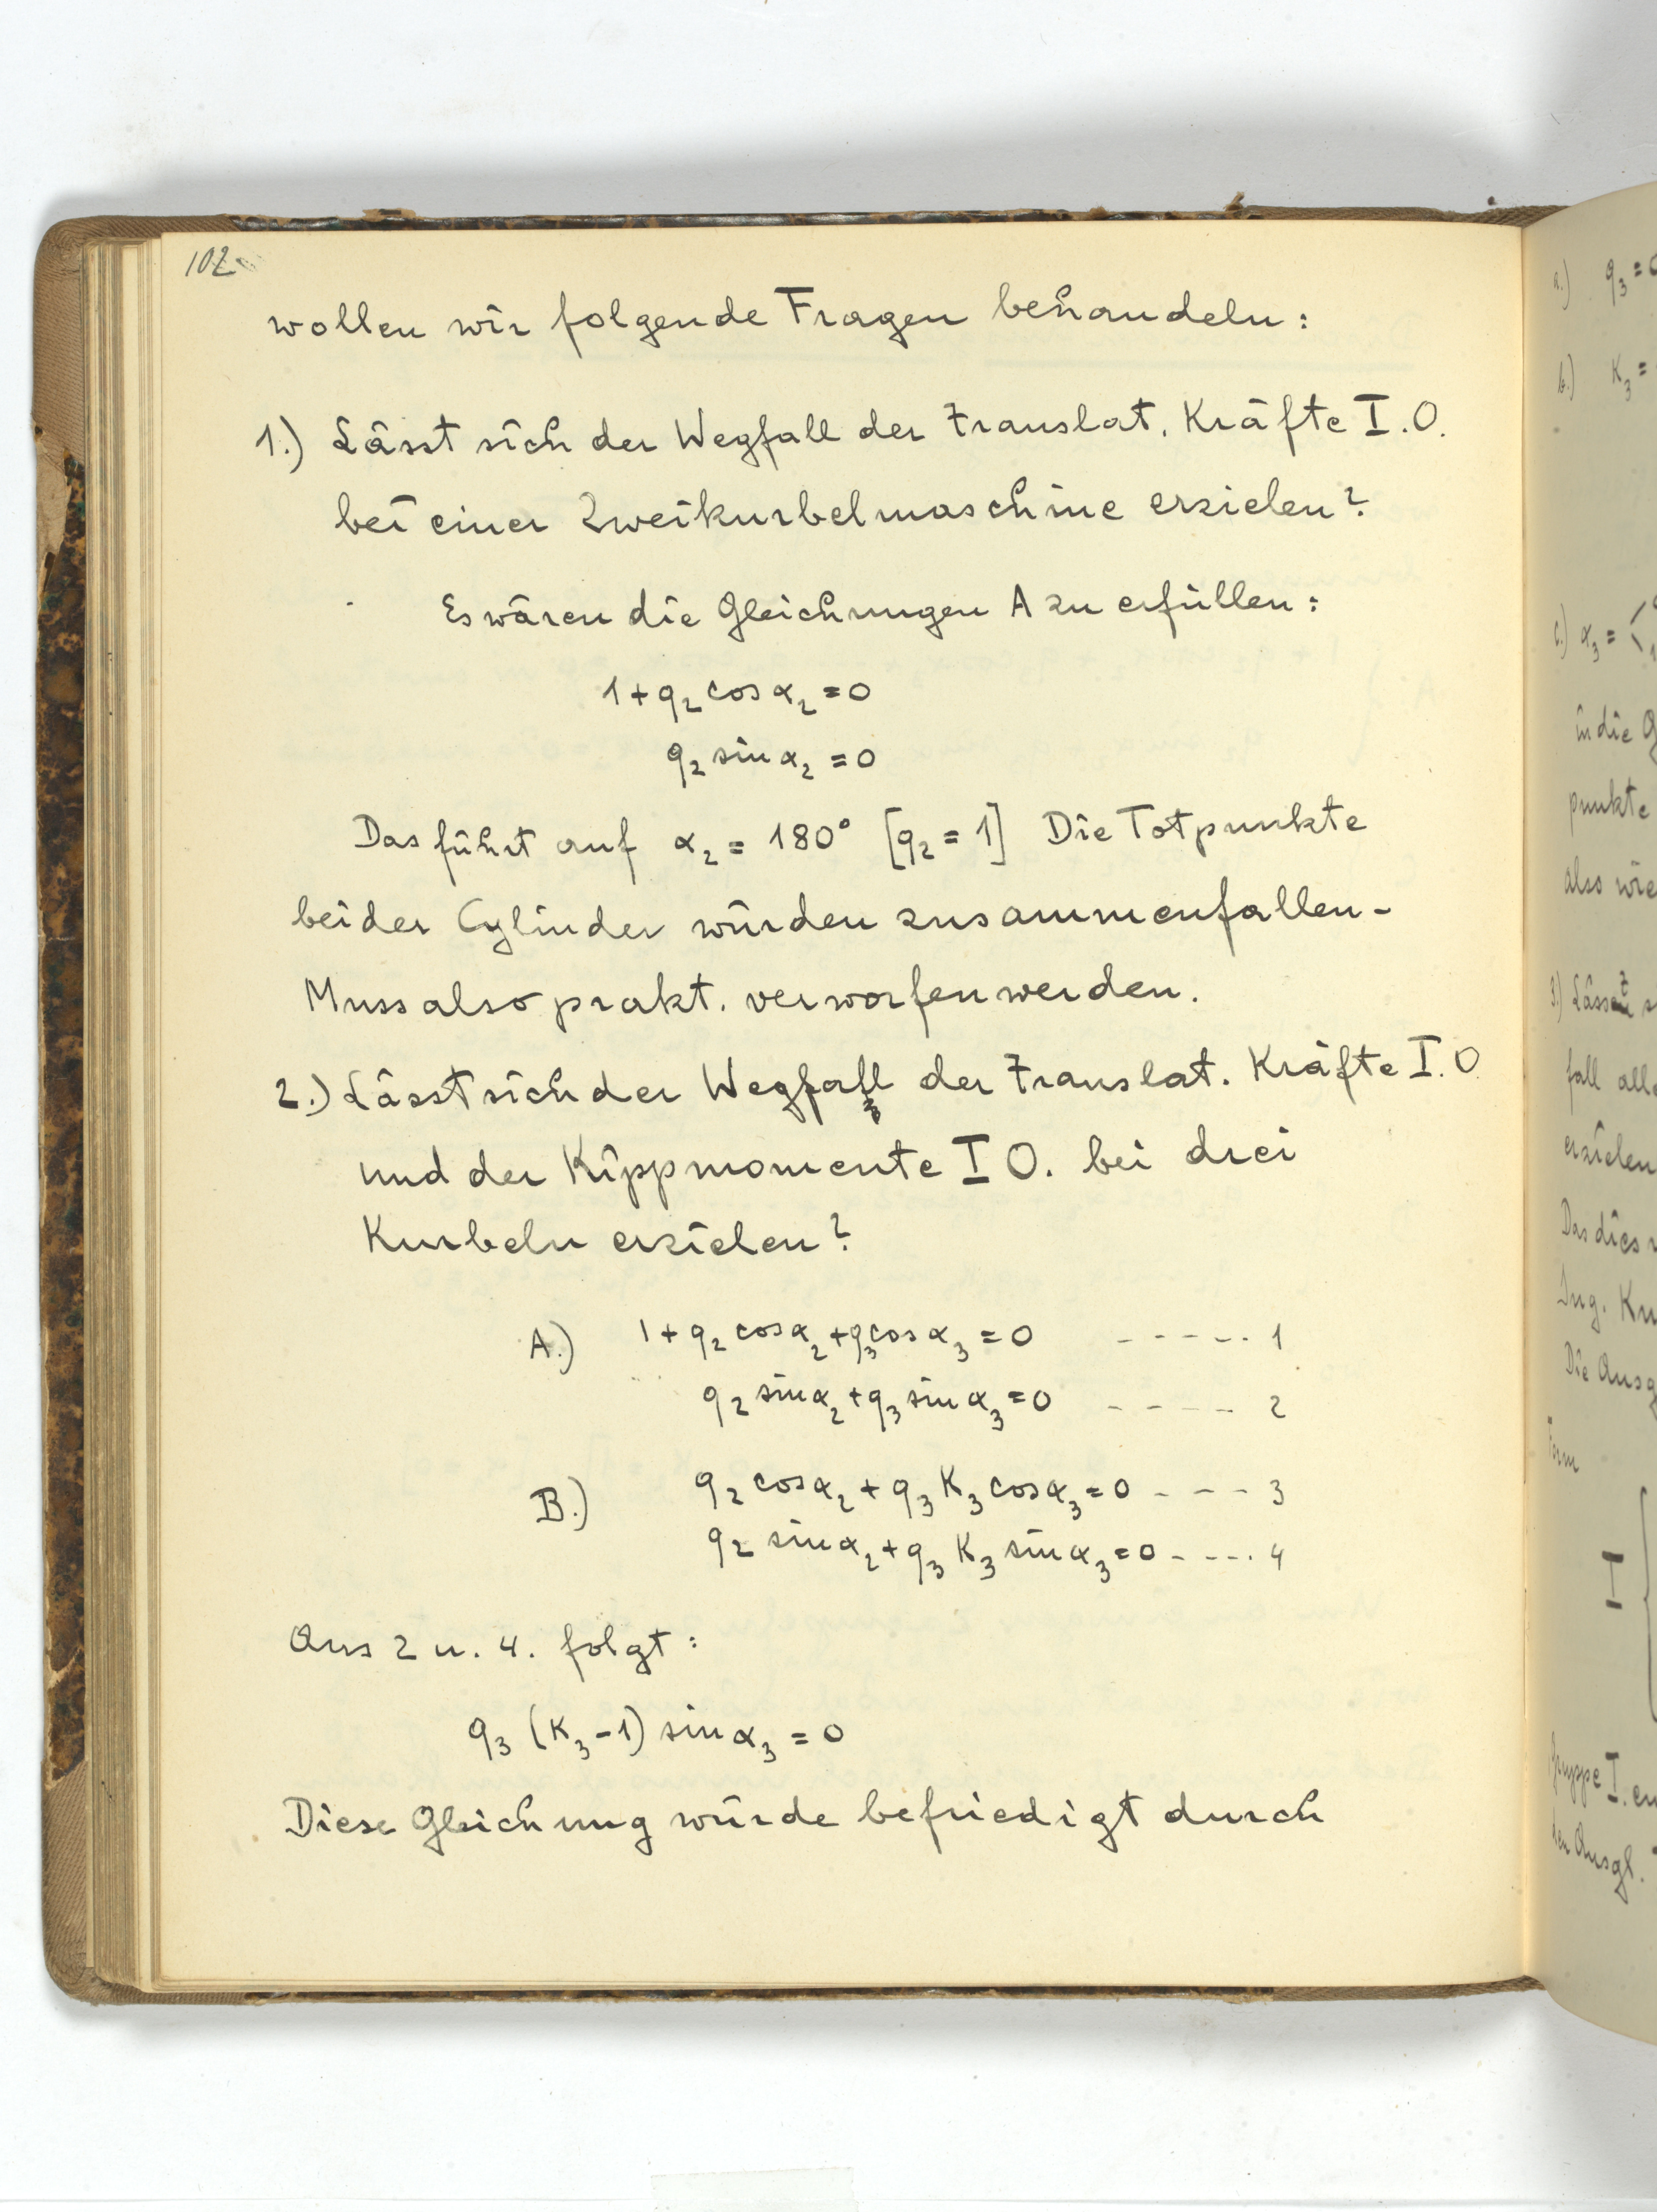 102
wollen wir folgende Fragen behandeln:
1.) Lässt sich der Wegfall der translat. Kräfte I.O.
bei einer Zweikurbelmaschine erzielen?
Es wären die Gleichungen A zu erfüllen:
1 + q₂ cos α₂ = 0
q₂ sin α₂ = 0
Das führt auf α₂ = 180° [q₂ = 1] Die Totpunkte
beider Cylinder würden zusammenfallen-
Muss also prakt. verworfen werden.
2.) Lässt sich der Wegfall der translat. Kräfte I.O
und der Kippmomente I O. bei drei
Kurbeln erzielen?
A.) 1 + q₂ cos α₂ + q₃ cos α₃ = 0 ----- 1
q₂ sin α₂ + q₃ sin α₃ = 0 ----- 2
B.) q₂ cos α₂ + q₃ K₃ cos α₃ = 0 --- 3
q₂ sin α₂ + q₃ K₃ sin α₃ = 0 ---- 4
Aus 2 u. 4. folgt:
q₃ (K₃ - 1) sin α₃ = 0
Diese Gleichung würde befriedigt durch
a.) q₃ =
b.) K₃ =
c.) α₃ =
in die
punkte
also wie
3.)
fall
erzielen
Das dies
Ing.
Die
Form
I
Gruppe I.
den Ausgl.